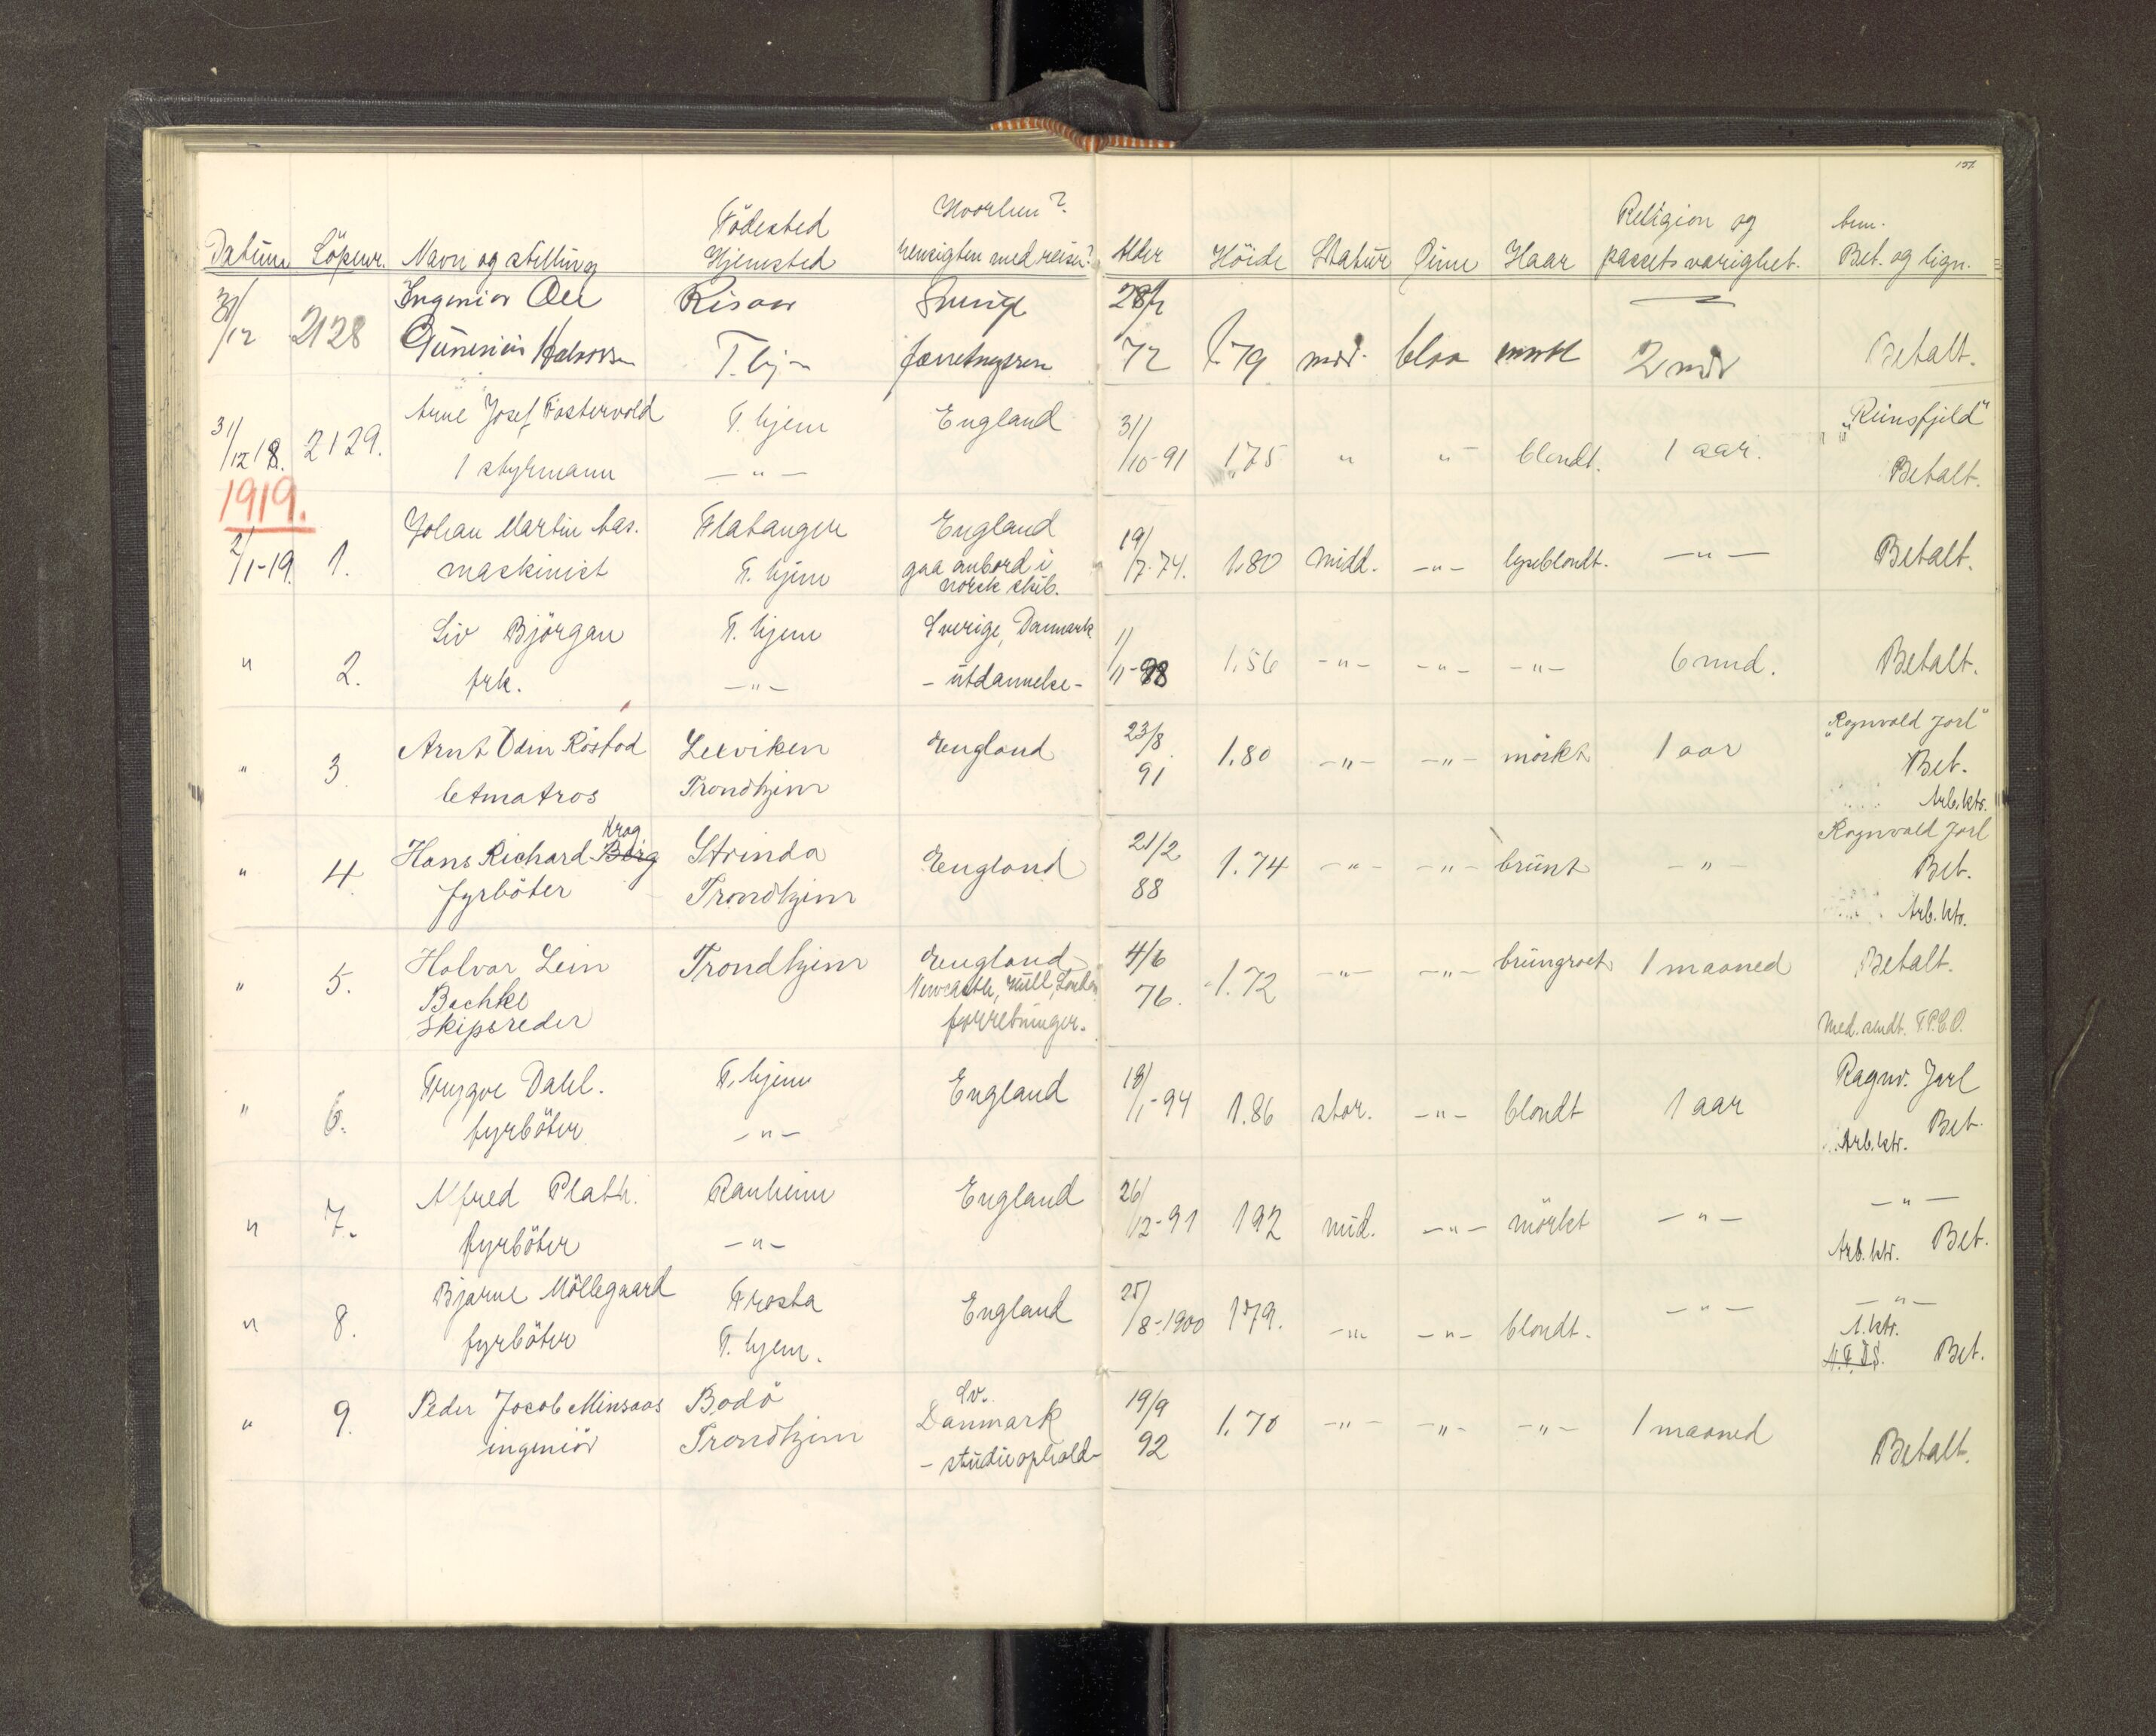 151.
Datum Löpenr. Navn og stilling Födested Hjemsted Hvorhen? hensigten med reisen? Alder Höide Statur Öine Haar Religion og passets varighet. bem. Bet. og lign.
31/12 2128 Ingeniør Ole Risør Sverige 28/2
Halvorsen T.hj— forretningsreise 72 1.79 mid. blaa mørkt 2 mdr Betalt.
31/12 18. 2129. Arne Josef Fostervold T. hjem England 31/10-91 1,75 " " blondt. 1 aar. "Reinsfjeld"
1 styrmann —"— Betalt.
1919.
2/1-19. 1. Johan Martin Aas. Flatanger England 19/7-74. 1.80 midd. —"— lyseblondt. —"— Betalt.
maskinist T. hjem gaa ombord i
norsk skib.
" 2. Liv Björgan T. hjem Sverige, Danmark 1/11-98 1.56 —"— —"— —"— 6 mnd. Betalt.
frk. —"— - utdannelse -
" 3 Arnt Odin Röstad Lexviken England 23/8 91 1.80 —"— —"— mörkt 1 aar "Rognvald Jarl"
letmatros Trondhjem Bet.
Arb.ktr.
" 4. Hans Richard Berg Krog Strinda England 21/2 88 1.74 —"— —"— brunt —"— Rognvald Jarl
fyrböter Trondhjem Bet.
Arb.ktr.
" 5. Halvor Lein Trondhjem England 4/6 76. 1.72 —"— —"— brungraat 1 maaned Betalt.
Bachke Newcastle, Hull, London
Skipsreder forretninger. Med. sendt. T.P.C.O.
" 6. Trygve Dahl. T. hjem England 18/1-94 1.86 stor. —"— blondt 1 aar Ragnv. Jarl
fyrböter —"— Arb.ktr. Bet.
" 7. Alfred Plath. Ranheim England 26/12-91 192 mid. —"— mörkt —"— —"—
fyrböter —"— Arb. ktr. Bet.
" 8. Bjarne Möllegaard Frosta England 25/8-1900 179. —"— —"— blondt. —"— —"—
fyrböter T. hjem. A.ktr.
Bet.
" 9. Peder Jacob Minsaas Bodö Sv. Danmark 19/9 92 1.70 —"— —"— —"— 1 maaned Betalt.
ingeniör Trondhjem - studieophold -